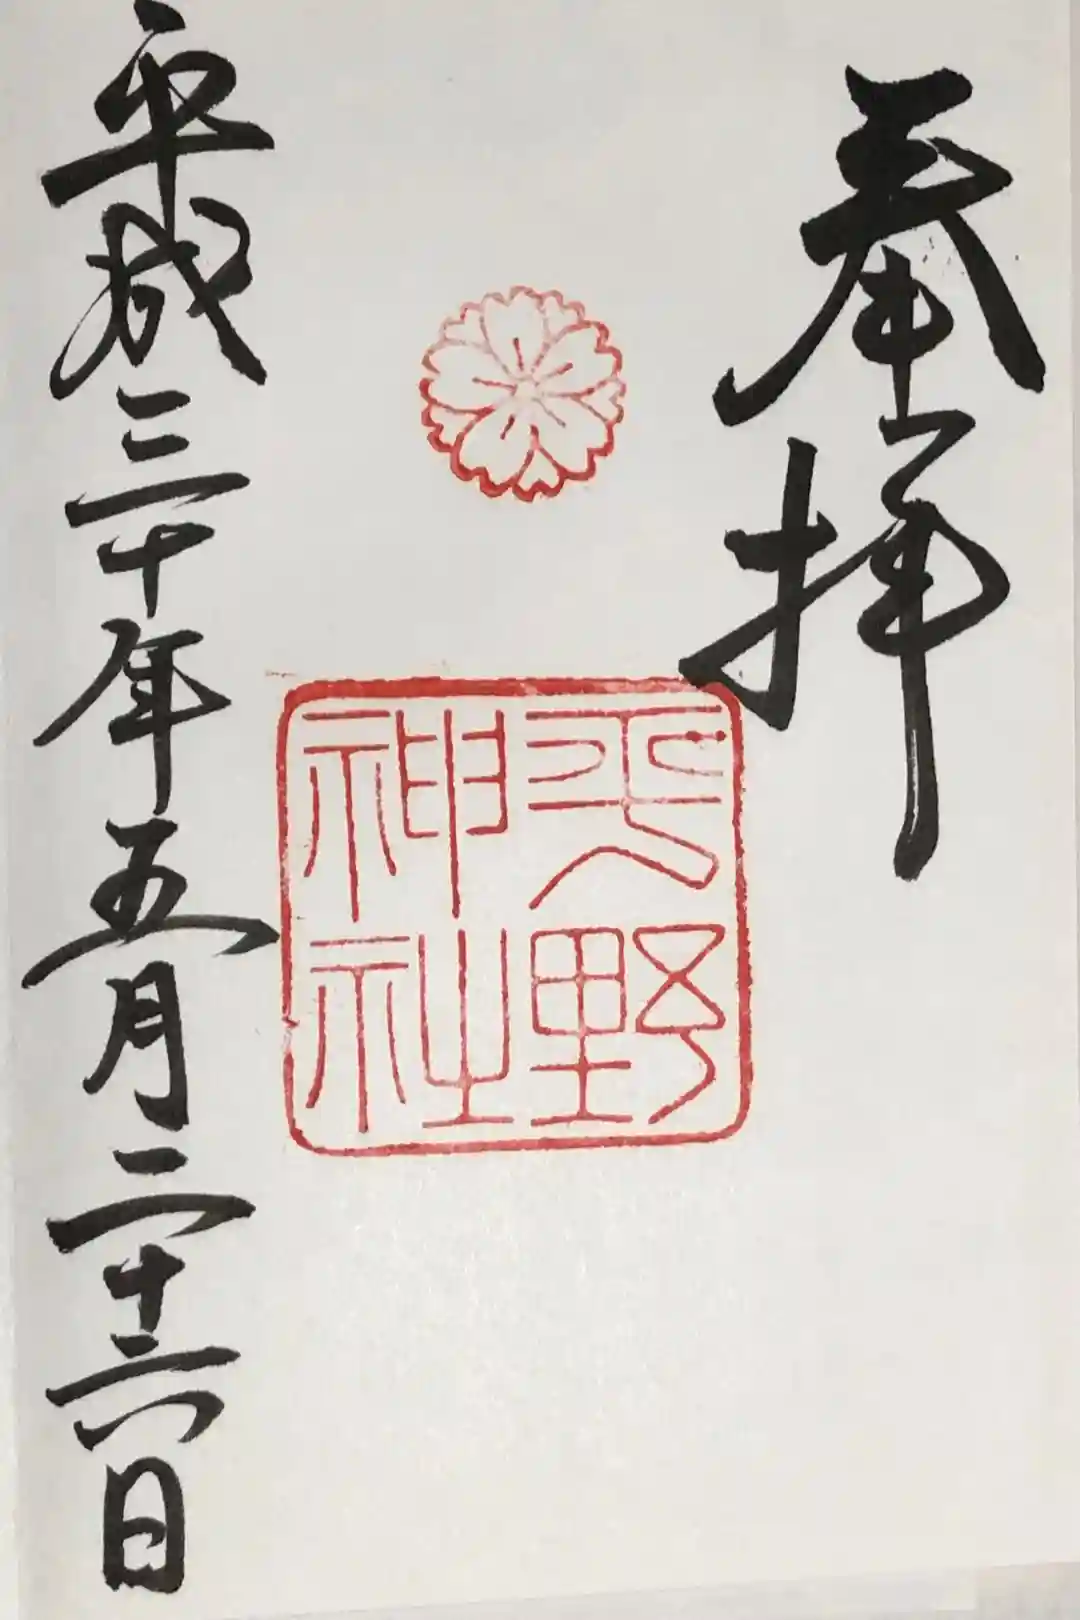 奉拝
平野
神社
平成三十年五月二十六日